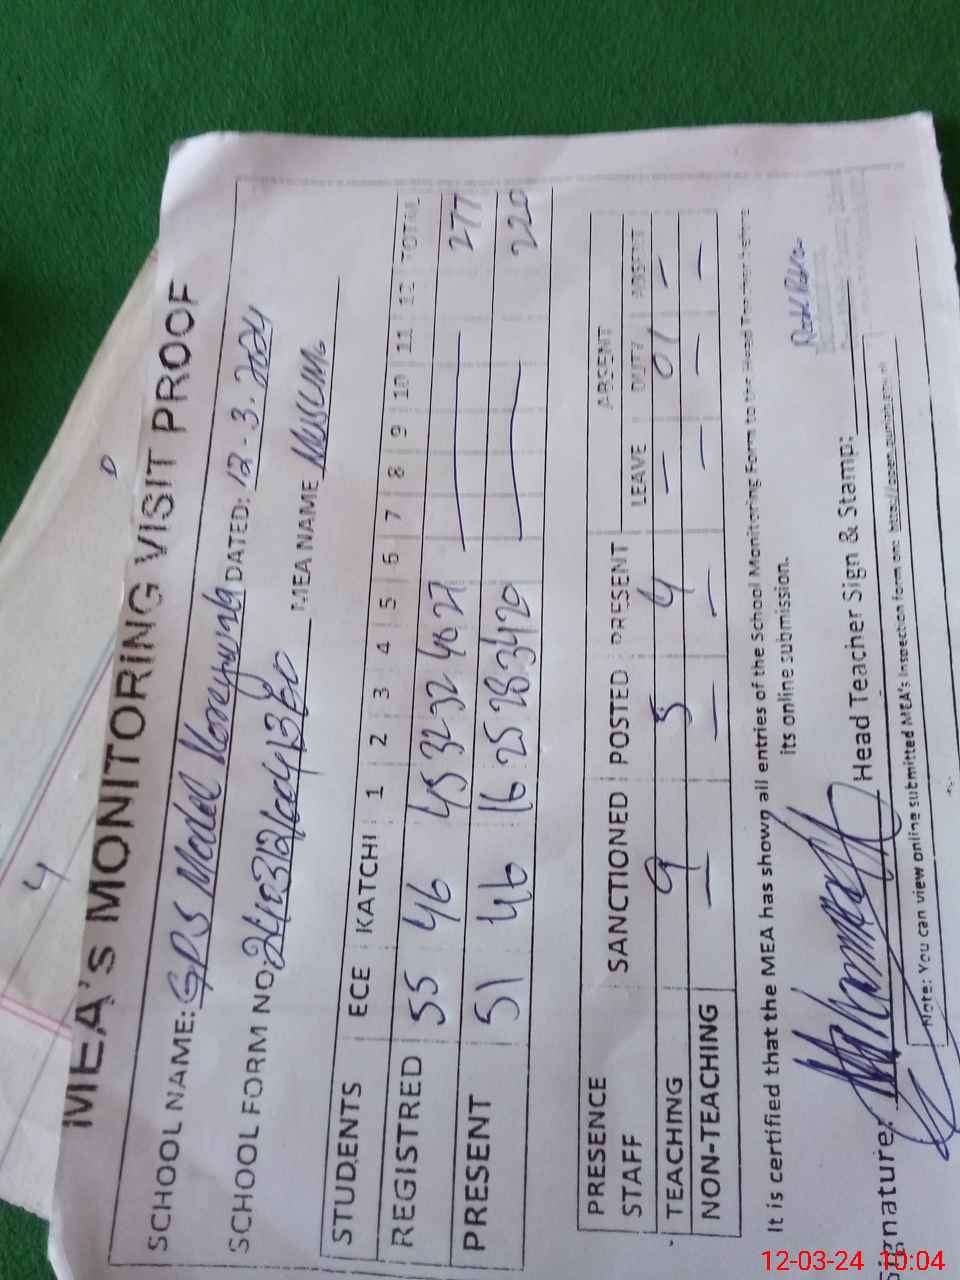 MEA's MONITORING VISIT PROOF
SCHOOL NAME: GPS Model DATED: 12-3-2024
SCHOOL FORM NO: MEA NAME
STUDENTS ECE KATCHI 1 2 3 4 5 6 7 8 9 10 11 12 TOTAL
REGISTRED 55 46 45 32 32 40 27 277
PRESENT 51 46 16 25 28 34 20 220
PRESENCE SANCTIONED POSTED PRESENT ABSENT
STAFF LEAVE DUTY ABSENT
TEACHING 9 5 4 — 01 —
NON-TEACHING — — — — — —
It is certified that the MEA has shown all entries of the School Monitoring Form to the Head Teacher before
its online submission.
Signature: Head Teacher Sign & Stamp:
Note: You can view online submitted MEA's Inspection form on:
4
12-03-24 10:04